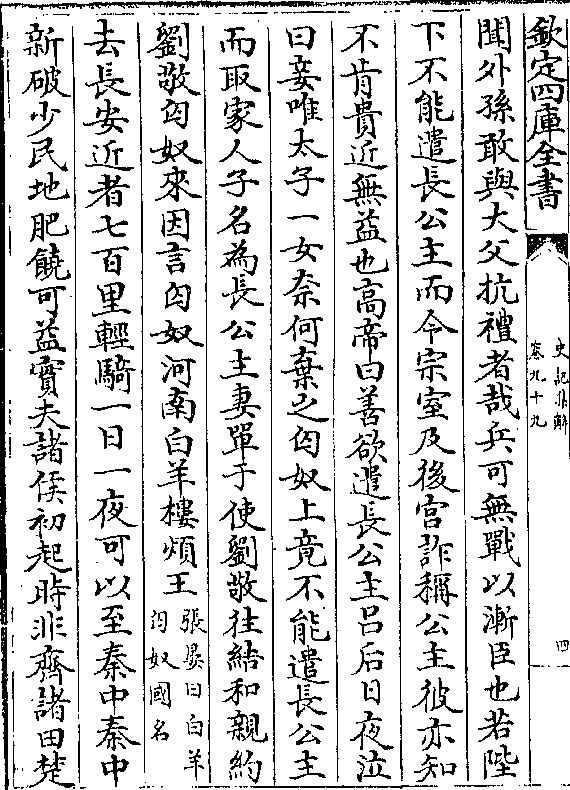 欽定四庫全書
史記集解
卷九十九
四
聞外孫敢與大父抗禮者哉兵可無戰以漸臣也若陛
下不能遣長公主而令宗室及後宮詐稱公主彼亦知
不肯貴近無益也高帝曰善欲遣長公主吕后日夜泣
曰妾唯太子一女奈何棄之匈奴上竟不能遣長公主
而取家人子名為長公主妻單于使劉敬往結和親約
劉敬匈奴來因言匈奴河南白羊樓煩王張晏曰白羊匈奴國名
去長安近者七百里輕騎一日一夜可以至秦中秦中
新破少民地肥饒可益實夫諸侯初起時非齊諸田楚